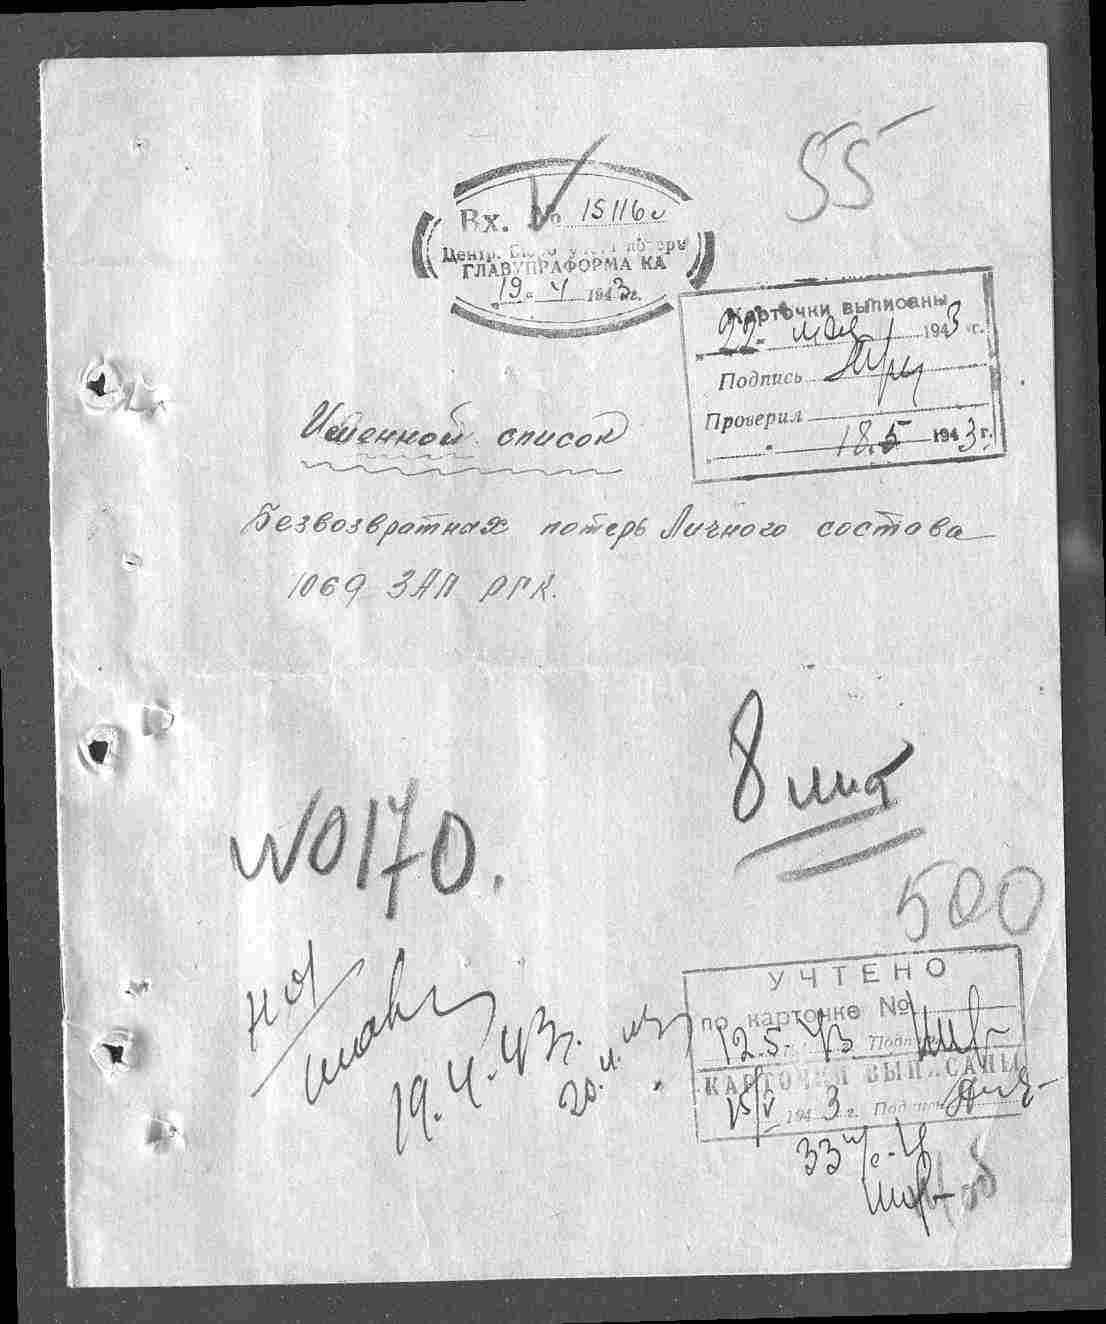 55
Вх. № 15116с
Центр. Бюро учета потерь
ГЛАВУПРАФОРМА КА
„19“ 4 1943г.
Карточки выписаны
„22“ мая 1943 г.
Подпись
Проверил
18.5 1943г.
Именной список
Безвозвратных потерь Личного состава
1069 ЗАП РГК.
8 лист
N0170.
500
УЧТЕНО
по карточке №
12.5. 43 Подпись
КАРТОЧКИ ВЫПИСАНЫ
15/V 1943 г. Подпись
19.4.43г.
33 ч/с